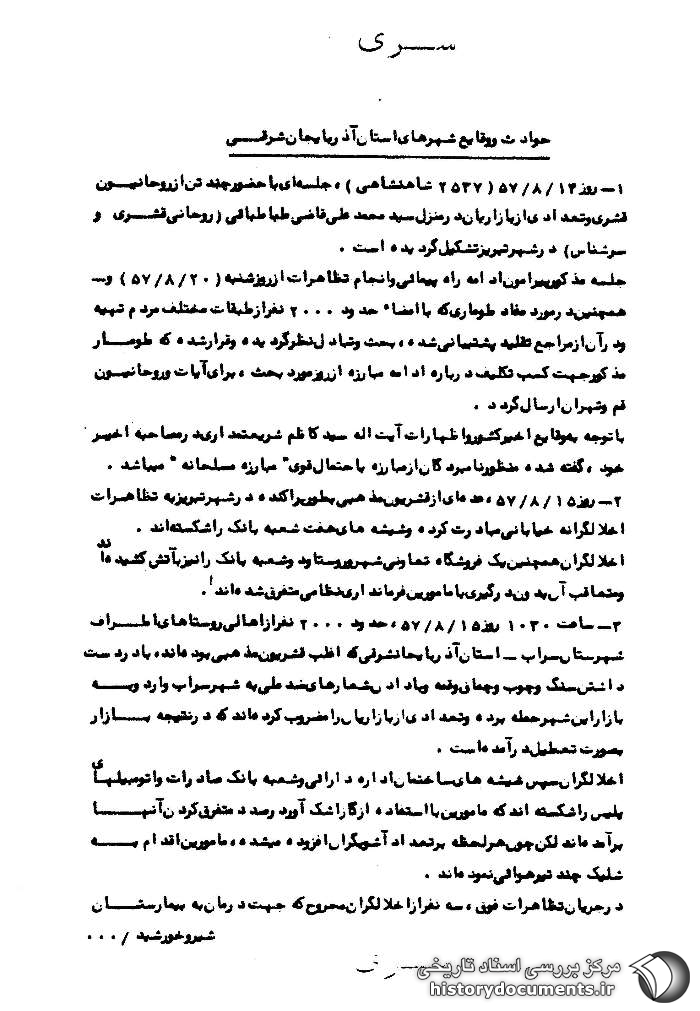 سری
حوادث ووقایع شهرهای استان آذربایجان شرقی
۱ــ روز ۵۷/۸/۱۴ (۲۵۳۷ شاهنشاهی)، جلسه‌ای با حضور چند تن از روحانیون
قشری و تعدادی از بازاریان در منزل سید محمد علی قاضی طباطبائی (روحانی قشری و
سرشناس) در شهر تبریز تشکیل گردیده است .
جلسه مذکور پیرامون ادامه راه پیمائی وانجام تظاهرات از روز شنبه (۵۷/۸/۲۰) و
همچنین در مورد مفاد طوماری که با امضاء حدود ۲۰۰۰ نفر از طبقات مختلف مردم تهیه
ودر آن از مراجع تقلید پشتیبانی شده، بحث و تبادل نظر گردیده و قرار شده که طومار
مذکور جهت کسب تکلیف درباره ادامه مبارزه از روز مورد بحث ، برای آیات و روحانیون
قم و تهران ارسال گردد .
با توجه به وقایع اخیر کشور و اظهارات آیت اله سید کاظم شریعتمداری در مصاحبه اخیر
خود ، گفته شده منظور نامبردگان از مبارزه با احتمال قوی "مبارزه مسلحانه" میباشد .
۲ــ روز ۵۷/۸/۱۵، عده‌ای از قشریون مذهبی بطور پراکنده در شهر تبریز به تظاهرات
اخلالگرانه خیابانی مبادرت کرده و شیشه های هفت شعبه بانک را شکسته‌اند .
اخلالگران همچنین یک فروشگاه تعاونی شهر و روستا و دو شعبه بانک را نیز بآتش کشیده‌اند
ومتعاقب آن بدون درگیری با مامورین فرمانداری نظامی متفرق شده‌اند .
۳ــ ساعت ۱۰۳۰ روز ۵۷/۸/۱۵، حدود ۲۰۰۰ نفر از اهالی روستاهای اطراف
شهرستان سراب ــ استان آذربایجانشرقی که اغلب قشریون مذهبی بوده‌اند، با در دست
داشتن سنگ و چوب و چماق و قمه و با دادن شعارهای ضد ملی به شهر سراب وارد و به
بازار این شهر حمله برده و تعدادی از بازاریان را مضروب کرده‌اند که در نتیجه بازار
بصورت تعطیل درآمده‌است .
اخلالگران سپس شیشه های ساختمان اداره دارائی و شعبه بانک صادرات و اتومبیلهای
پلیس را شکسته اند که مامورین با استفاده از گاز اشک آور درصدد متفرق کردن آنها
برآمده‌اند لکن چون هر لحظه برتعداد آشوبگران افزوده میشده، مامورین اقدام به
شلیک چند تیر هوائی نموده‌اند .
در جریان تظاهرات فوق، سه نفر از اخلالگران مجروح که جهت درمان به بیمارستان
شیروخورشید /...
سری
مرکز بررسی اسناد تاریخی
historydocuments.ir